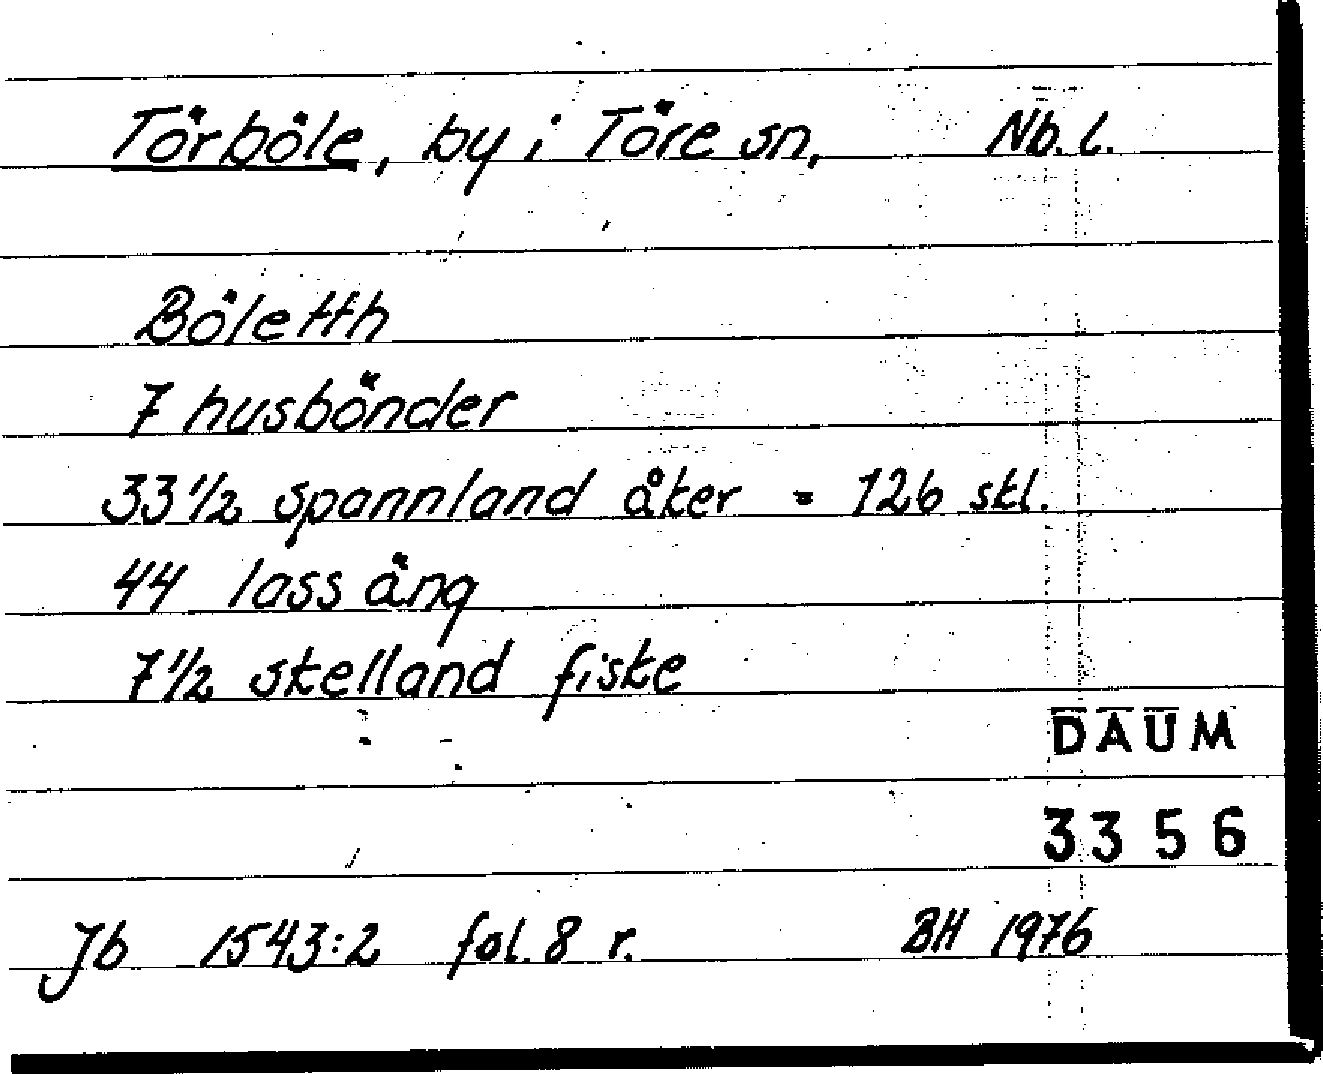 Törböle, by i Töre sn, Nb. l.
Böletth
7 husbönder
33 1/2 spannland åker = 126 skl.
44 lass äng
7 1/2 skelland fiske
DAUM
3356
Jb 1543:2 fol. 8 r. BH 1976